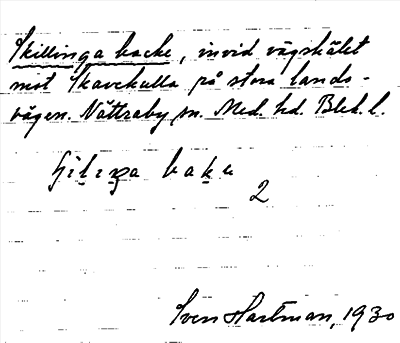 Skillinga backe, invid vägskälet
mot Skavekulla på stora lands-
vägen. Nättraby sn. Med. hd. Blek. l.
baku
2
Sven Hartman, 1930